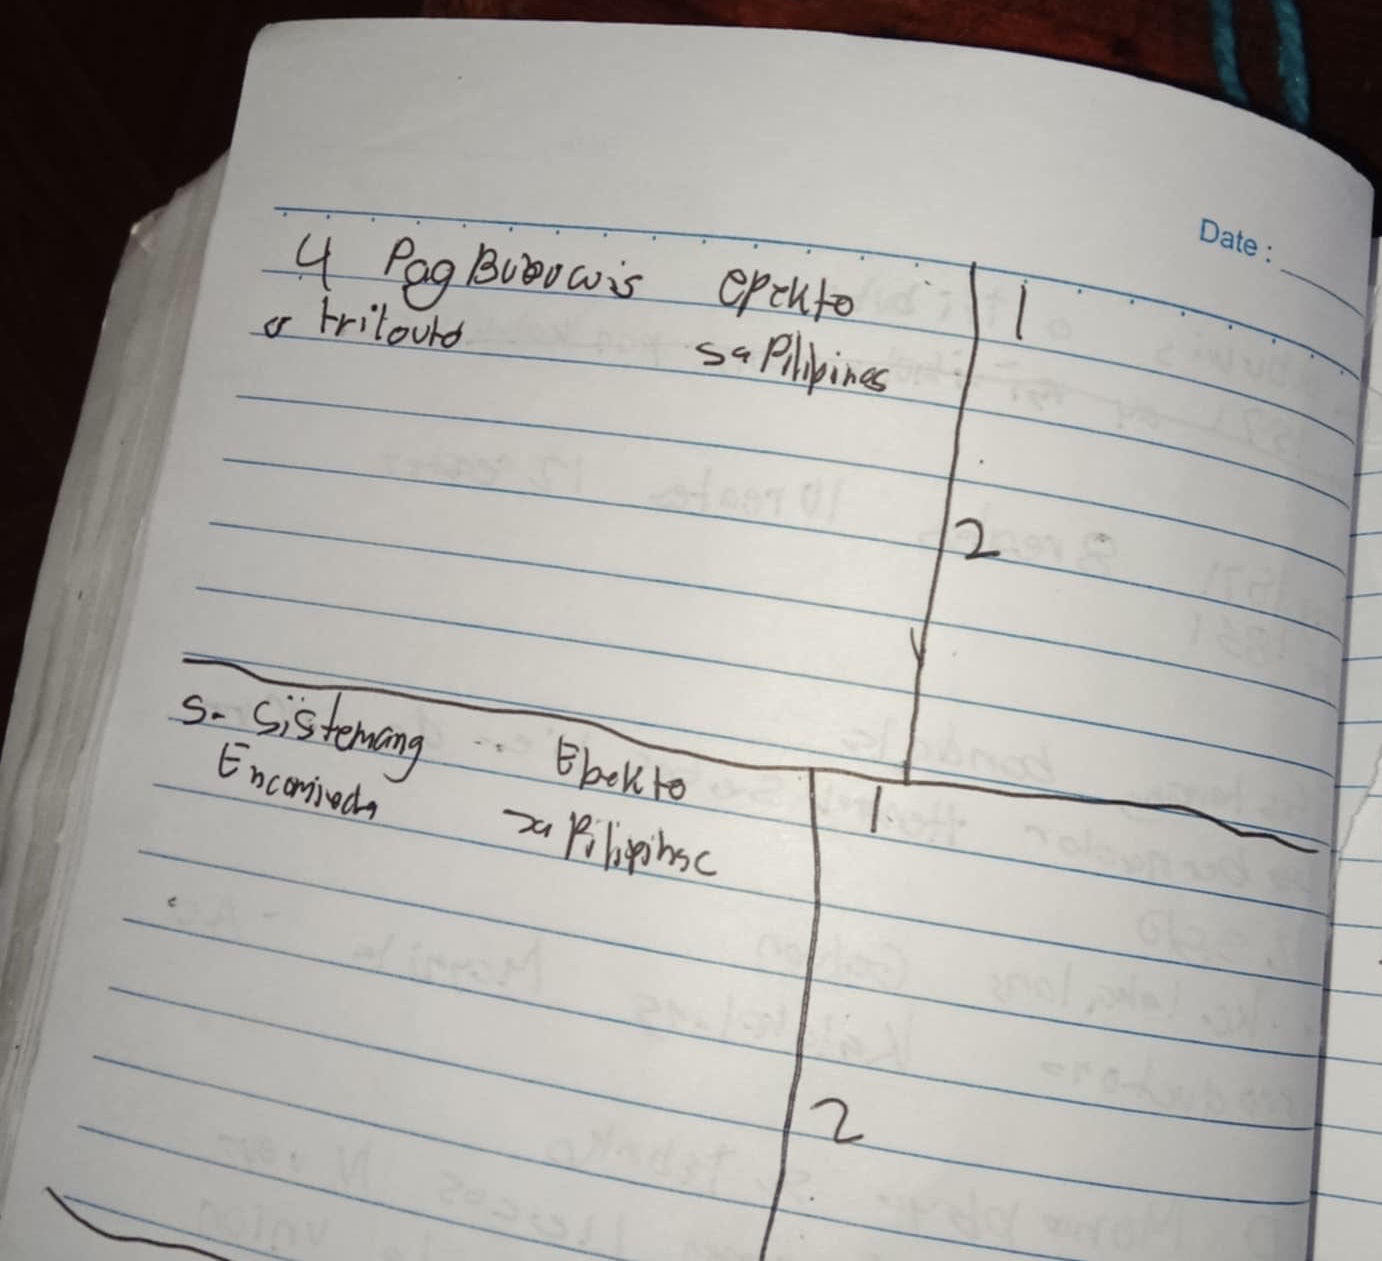 Date:
4 PagBubuwis epekto 1
o tributo sa Pilipinas
2
5- Sistemang Epekto 1.
Encomienda sa Pilipinas
2